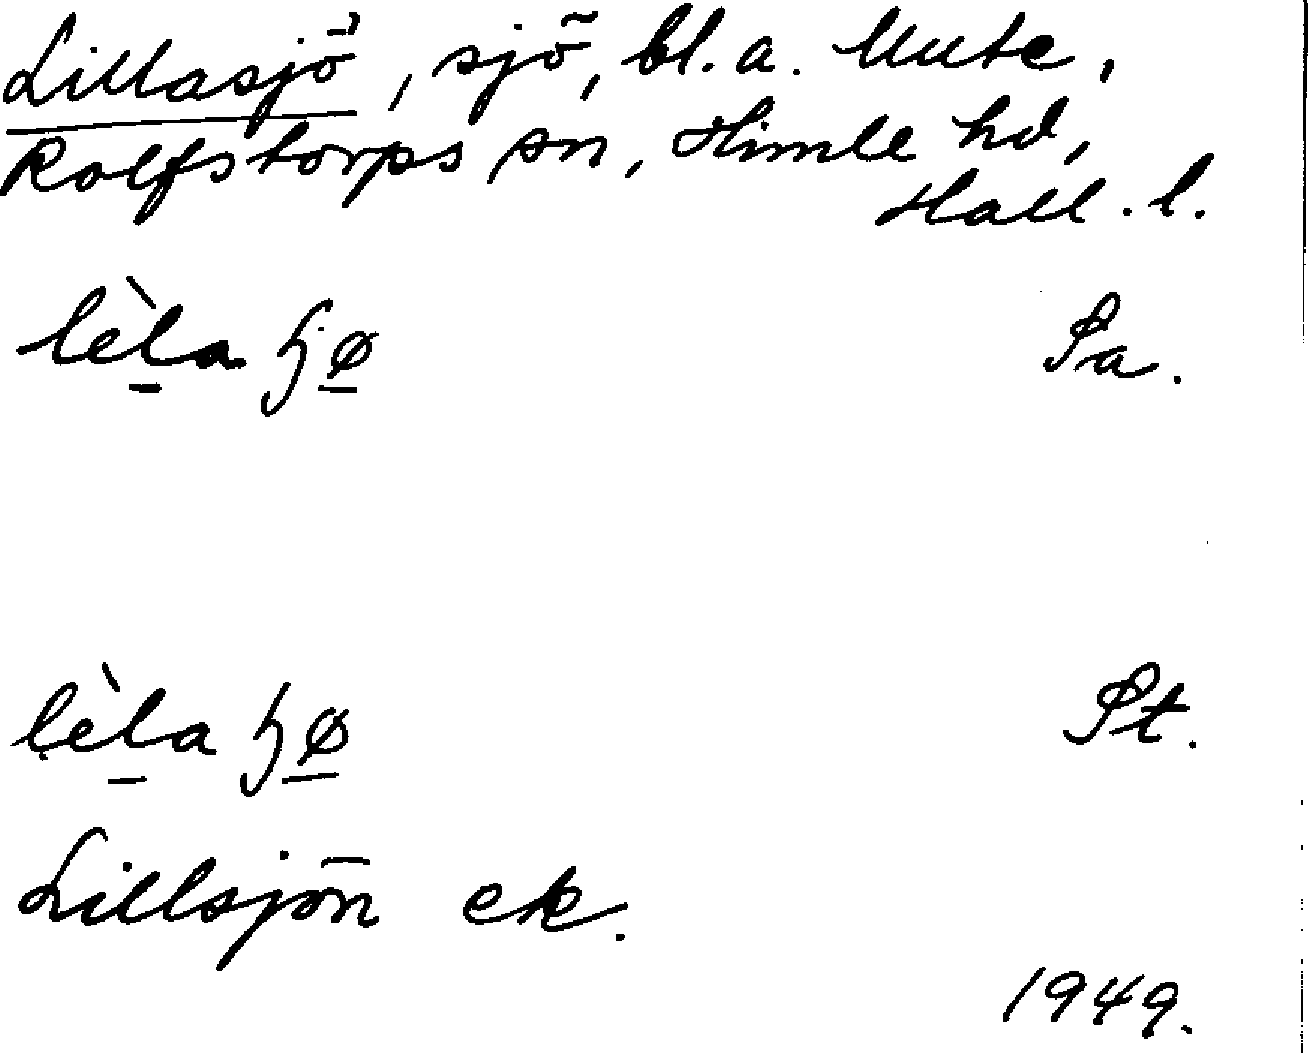 Lillasjö, sjö, bl.a. Mute,
Rolfstorps sn, Himle hd,
Hall. l.
lèla ɧø Pa.
lèla ɧø Pt.
Lillsjön ek.
1949.